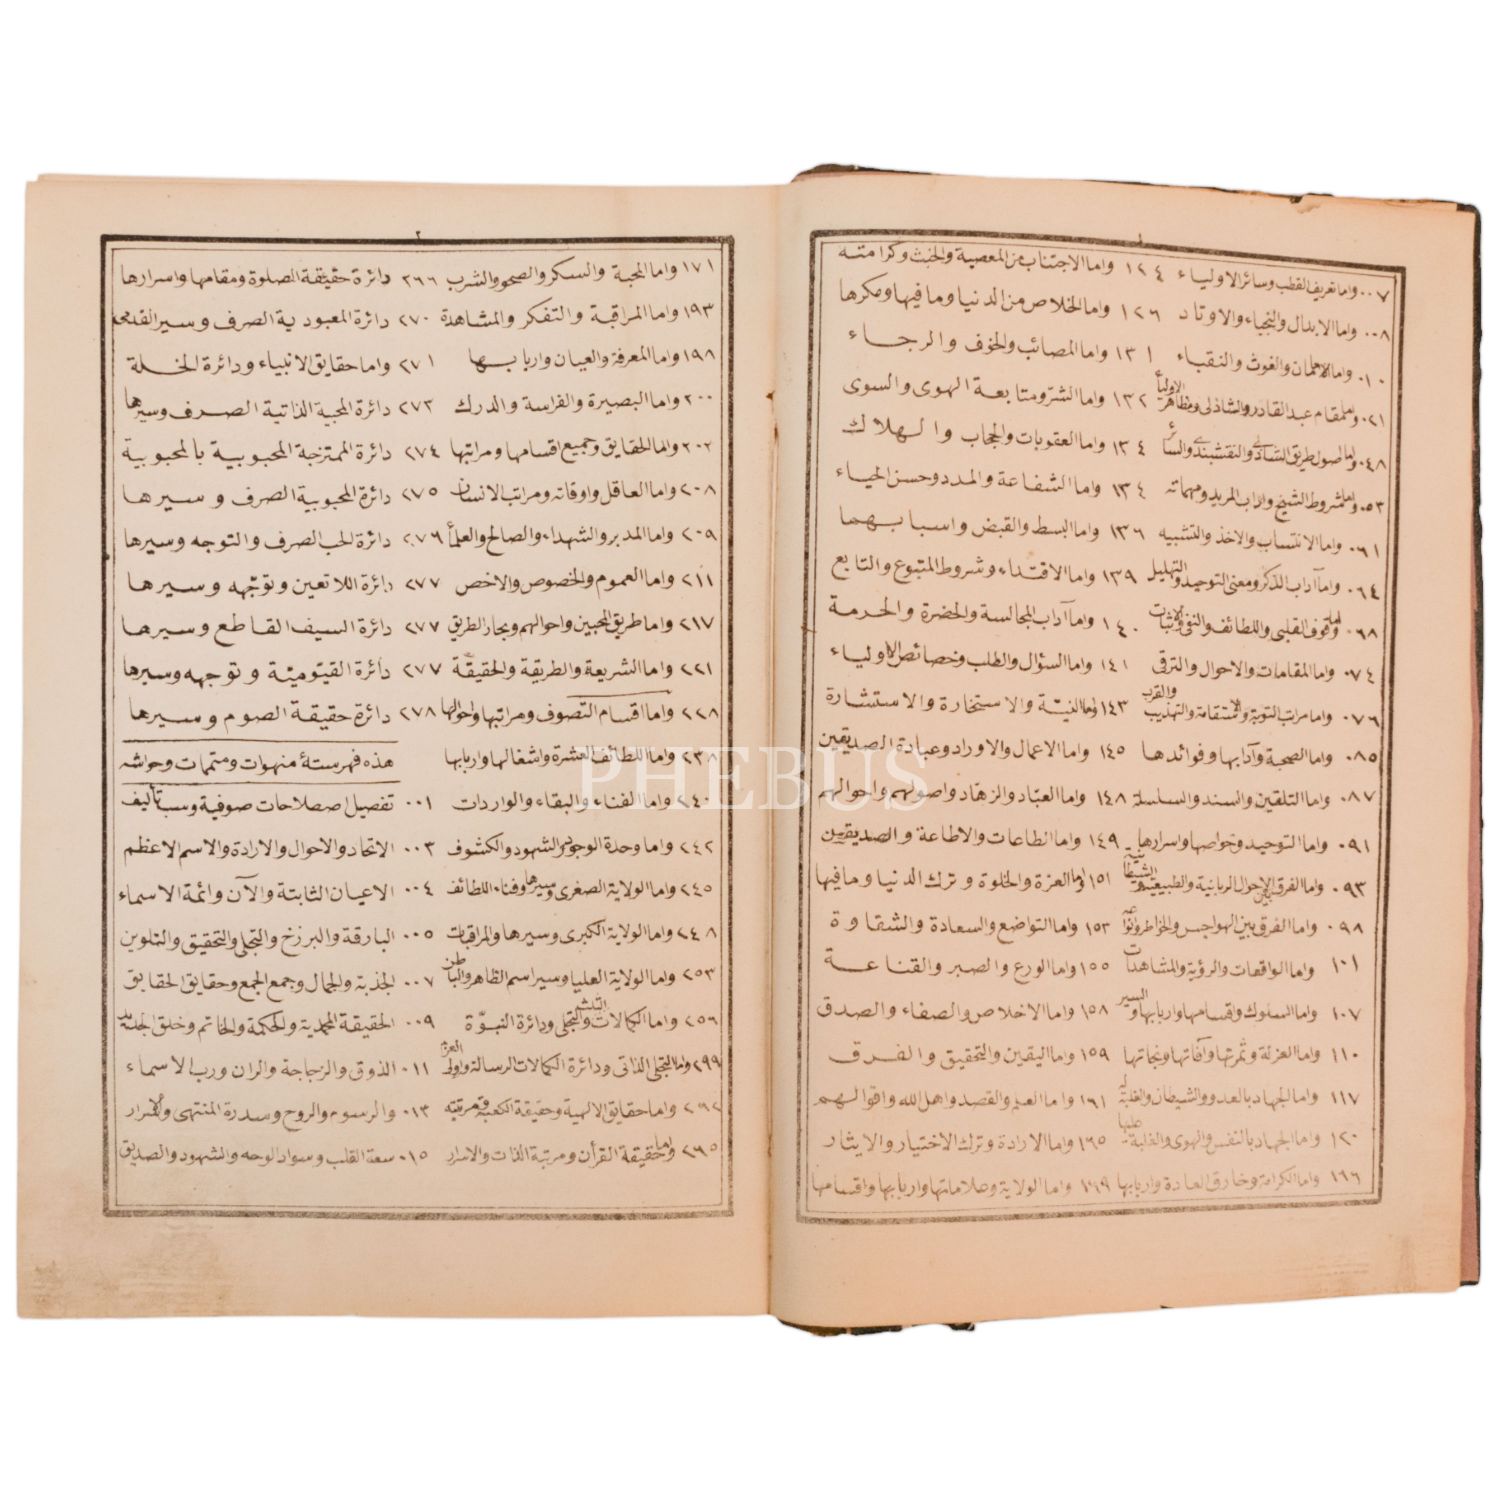 ١
٠٠٧ واما تعريف القطب وسائر الاولياء
٠٠٨ واما الابدال والنجباء والاوتاد
٠١٠ واما الامامان والغوث والنقباء
٠٢١ واما مقام عبدالقادر والشاذلى ومظاهر الاولياء
٠٤٨ واما اصول طريق الشاذلى والنقشبندى والسائر
٠٥٣ واما شروط الشيخ واداب المريد ومهماته
٠٦١ واما الانتساب والاخذ والتشبيه
٠٦٤ واما آداب الذكر ومعنى التوحيد والتهليل
٠٦٨ واما وقوف القلبى واللطائف والنفى والاثبات
٠٧٤ واما المقامات والاحوال والترقى
٠٧٦ واما مراتب التوبة والاستقامة والتهذيب والقرب
٠٨٥ واما الصحبة وآدابها وفوائدها
٠٨٧ واما التلقين والسند والسلسلة
٠٩١ واما التوحيد وخواصها واسرارها
٠٩٣ واما الفرق بين الاحوال الربانية والطبيعية والشيطانية
٠٩٨ واما الفرق بين الهواجس والخواطر وانواعه
١٠١ واما الواقعات والرؤية والمشاهدات
١٠٧ واما السلوك واقسامها واربابها والسير
١١٠ واما العزلة وثمرتها وآفاتها ونجاتها
١١٧ واما الجهاد بالعدو والشيطان والغلبة له
١٢٠ واما الجهاد بالنفس والهوى والغلبة عليها
١٦٦ واما الكرامة وخارق العادة واربابها
١٢٤ واما الاجتناب من المعصية والخبث وكرامته
١٢٦ واما الخلاص من الدنيا وما فيها ومكرها
١٣١ واما المصائب والخوف والرجاء
١٣٢ واما الشر ومتابعة الهوى والسوى
١٣٤ واما العقوبات والحجاب والهلاك
١٣٤ واما الشفاعة والمدد وحسن الحياء
١٣٦ واما البسط والقبض واسبابهما
١٣٩ واما الاقتداء وشروط المتبوع والتابع
١٤٠ واما آداب المجالسة والحضرة والحرمة
١٤١ واما السؤال والطلب وخصائص الاولياء
١٤٣ واما النية والاستخارة والاستشارة
١٤٥ واما الاعمال والاوراد وعبادة الصديقين
١٤٨ واما العبّاد والزهاد واصولهم واحوالهم
١٤٩ واما الطاعات والاطاعة والصديقين
١٥١ واما العزة والخلوة وترك الدنيا وما فيها
١٥٣ واما التواضع والسعادة والشقاوة
١٥٥ واما الورع والصبر والقناعة
١٥٨ واما الاخلاص والصفاء والصدق
١٥٩ واما اليقين والتحقيق والفرق
١٦١ واما العلم والقصد واهل الله واقوالهم
١٦٥ واما الارادة وترك الاختيار والايثار
١٦٩ واما الولاية وعلاماتها واربابها واقسامها
٢
١٧١ واما المحبة والسكر والصحو والشرب
١٩٣ واما المراقبة والتفكر والمشاهدة
١٩٨ واما المعرفة والعيان واربابها
٢٠٠ واما البصيرة والفراسة والدرك
٢٠٢ واما الحقايق وجميع اقسامها ومراتبها
٢٠٨ واما العاقل واوقاته ومراتب الانسان
٢٠٩ واما المدبر والشهداء والصالح والعلمأ
٢١١ واما العموم والخصوص والاخص
٢١٧ واما طريق المحبين واحوالهم وبحار الطريق
٢٢١ واما الشريعة والطريقة والحقيقة
٢٢٨ واما اقسام التصوف ومراتبها واحوالها
٢٣٨ واما اللطائف العشرة واشغالها واربابها
٢٤٠ واما الفناء والبقاء والواردات
٢٤٢ واما وحدة الوجود والشهود والكشوف
٢٤٥ واما الولاية الصغرى وسيرها وفناء اللطائف
٢٤٨ واما الولاية الكبرى وسيرها والمراقبات
٢٥٣ واما الولاية العليا وسير اسم الظاهر والباطن
٢٥٦ واما الكمالات والتجلى ودائرة النبوّة
٢٩٩ واما التجلى الذاتى ودائرة الكمالات الرسالة واولى العزم
٢٦٢ واما حقايق الالهية وحقيقة الكعبة ومرتبته
٢٦٥ واما حقيقة القرأن ومرتبة الذات والاسرار
٢٦٦ دائرة حقيقة الصلوة ومقامها واسرارها
٢٧٠ دائرة المعبودية الصرف وسير القدمى
٢٧١ واما حقايق الانبياء ودائرة الخلة
٢٧٣ دائرة المحبة الذاتية الصرف وسيرها
٢٧٤ دائرة الممتزجة المحبوبية بالمحبوبية
٢٧٥ دائرة المحبوبية الصرف وسيرها
٢٧٦ دائرة الحب الصرف والتوجه وسيرها
٢٧٧ دائرة اللاتعين وتوجّهه وسيرها
٢٧٧ دائرة السيف القاطع وسيرها
٢٧٧ دائرة القيّوميّة وتوجهه وسيرها
٢٧٨ دائرة حقيقة الصوم وسيرها
هذه فهرستۀ منهوات ومتممات وحواشه
٠٠١ تفصيل اصطلاحات صوفية وسبب تأليف
٠٠٣ الاتحاد والاحوال والارادة والاسم الاعظم
٠٠٤ الاعيان الثابتة والآن وائمة الاسماء
٠٠٥ البارقة والبرزخ والتجلى والتحقيق والتلوين
٠٠٧ الجذبة والجمال وجمع الجمع وحقايق الحقايق
٠٠٩ الحقيقة المحمدية والحكمة والخاتم وخلق الجديد
٠١١ الذوق والزجاجة والران ورب الاسماء
٠١٣ والرسوم والروح وسدرة المنتهى والاسرار
٠١٥ سعة القلب وسواد الوجه والشهود والصديق
PHEBUS